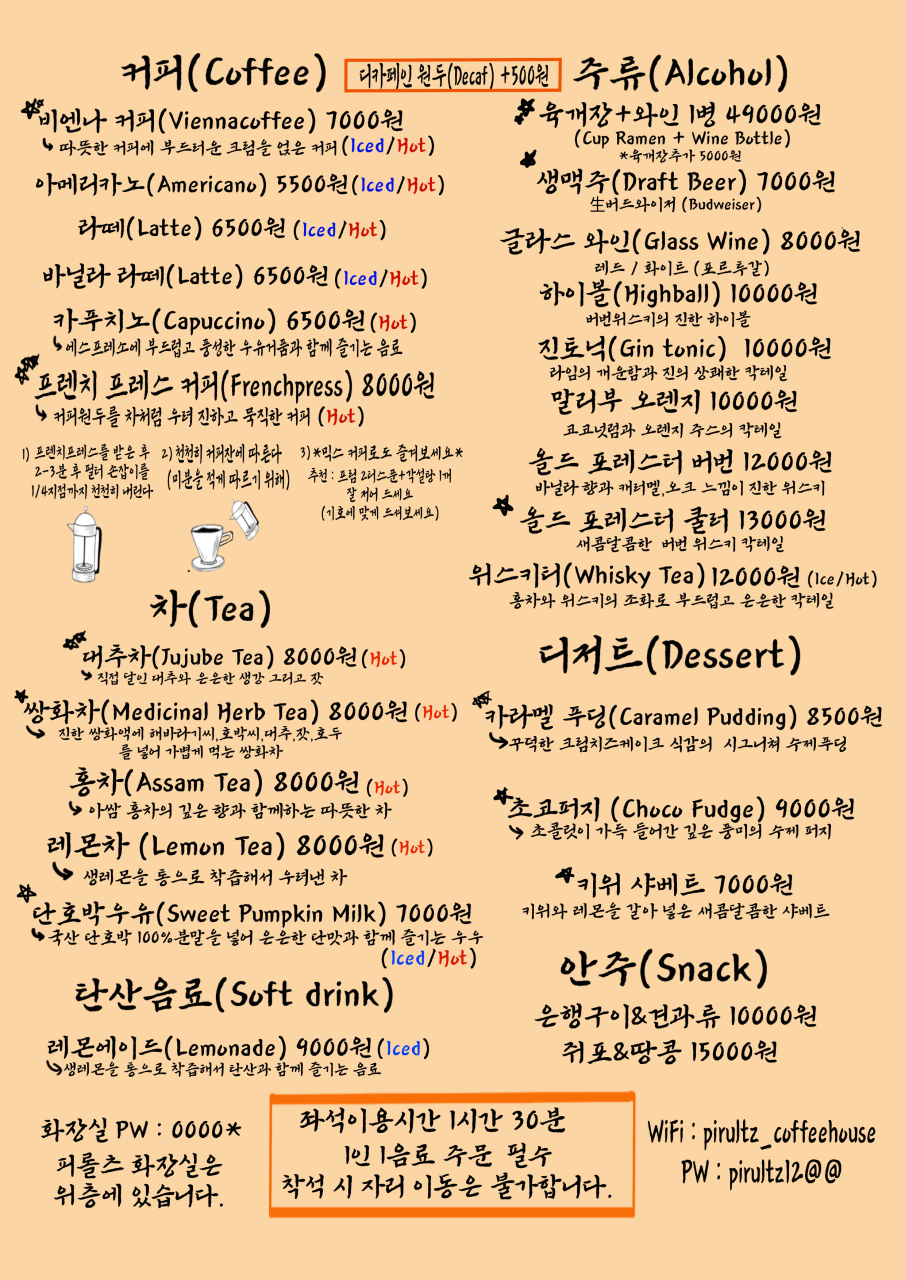 커피(Coffee)
디카페인 원두(Decaf) +500원
비엔나 커피(Viennacoffee) 7000원
따뜻한 커피에 부드러운 크림을 얹은 커피 (Iced/Hot)
아메리카노(Americano) 5500원(Iced/Hot)
라떼(Latte) 6500원 (Iced/Hot)
바닐라 라떼(Latte) 6500원 (Iced/Hot)
카푸치노(Capuccino) 6500원 (Hot)
에스프레소에 부드럽고 풍성한 우유거품과 함께 즐기는 음료
프렌치 프레스 커피(Frenchpress) 8000원
커피원두를 차처럼 우려 진하고 묵직한 커피 (Hot)
1) 프렌치프레스를 받은 후
2-3분 후 필터 손잡이를
1/4지점까지 천천히 내린다
2) 천천히 커피잔에 따른다
(미분을 적게 따르기 위해)
3) *믹스 커피로도 즐겨보세요*
추천 : 프림 2티스푼+각설탕 1개
잘 저어 드세요
(기호에 맞게 드셔보세요)
차(Tea)
대추차(Jujube Tea) 8000원 (Hot)
직접 달인 대추와 은은한 생강 그리고 잣
쌍화차(Medicinal Herb Tea) 8000원 (Hot)
진한 쌍화액에 해바라기씨,호박씨,대추,잣,호두
를 넣어 가볍게 먹는 쌍화차
홍차(Assam Tea) 8000원 (Hot)
아쌈 홍차의 깊은 향과 함께하는 따뜻한 차
레몬차 (Lemon Tea) 8000원 (Hot)
생레몬을 통으로 착즙해서 우려낸 차
단호박우유(Sweet Pumpkin Milk) 7000원
국산 단호박 100%분말을 넣어 은은한 단맛과 함께 즐기는 우유
(Iced/Hot)
탄산음료(Soft drink)
레몬에이드(Lemonade) 9000원 (Iced)
생레몬을 통으로 착즙해서 탄산과 함께 즐기는 음료
주류(Alcohol)
육개장+와인 1병 49000원
(Cup Ramen + Wine Bottle)
*육개장추가 5000원
생맥주(Draft Beer) 7000원
生버드와이저 (Budweiser)
글라스 와인(Glass Wine) 8000원
레드 / 화이트 (포르투갈)
하이볼(Highball) 10000원
버번위스키의 진한 하이볼
진토닉(Gin tonic) 10000원
라임의 개운함과 진의 상쾌한 칵테일
말리부 오렌지 10000원
코코넛럼과 오렌지 주스의 칵테일
올드 포레스터 버번 12000원
바닐라 향과 캐러멜,오크 느낌이 진한 위스키
올드 포레스터 쿨러 13000원
새콤달콤한 버번 위스키 칵테일
위스키티(Whisky Tea) 12000원 (Ice/Hot)
홍차와 위스키의 조화로 부드럽고 은은한 칵테일
디저트(Dessert)
카라멜 푸딩(Caramel Pudding) 8500원
꾸덕한 크림치즈케이크 식감의 시그니처 수제푸딩
초코퍼지 (Choco Fudge) 9000원
초콜릿이 가득 들어간 깊은 풍미의 수제 퍼지
키위 샤베트 7000원
키위와 레몬을 갈아 넣은 새콤달콤한 샤베트
안주(Snack)
은행구이&견과류 10000원
쥐포&땅콩 15000원
화장실 PW : 0000*
피롤츠 화장실은
위층에 있습니다.
좌석이용시간 1시간 30분
1인 1음료 주문 필수
착석 시 자리 이동은 불가합니다.
WiFi : pirultz_coffeehouse
PW : pirultz12@@